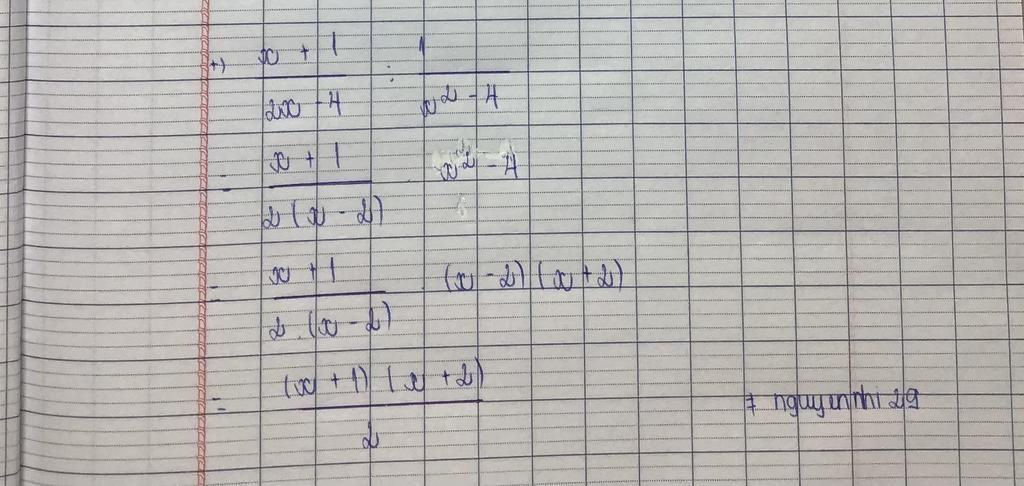 +) x + 1 : 1
2x - 4 x² - 4
= x + 1 . x² - 4
2 (x - 2)
= x + 1 . (x - 2) (x + 2)
2 . (x - 2)
= (x + 1) (x + 2)
2
# nguyennhi 29